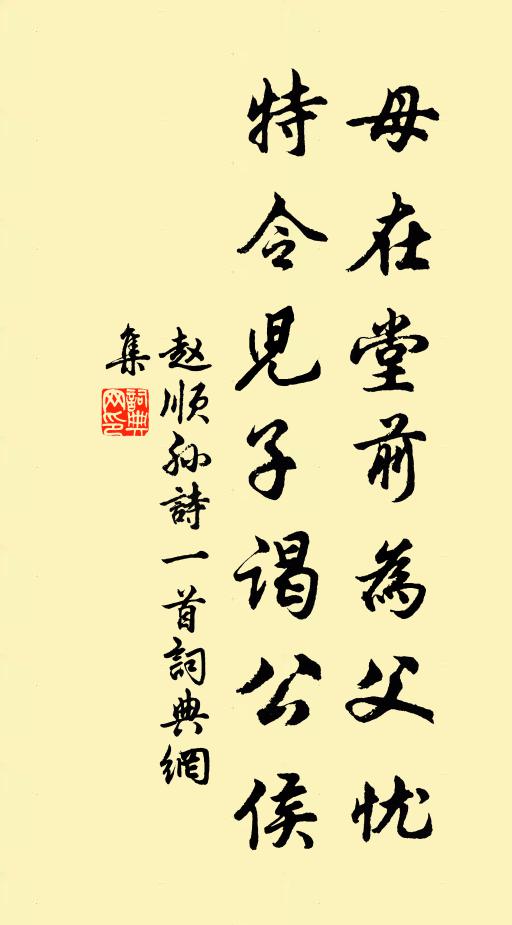 母在堂前為父忧
特令児子谒公侯
赵順孙詩一首詞典網
集
詞典
网印